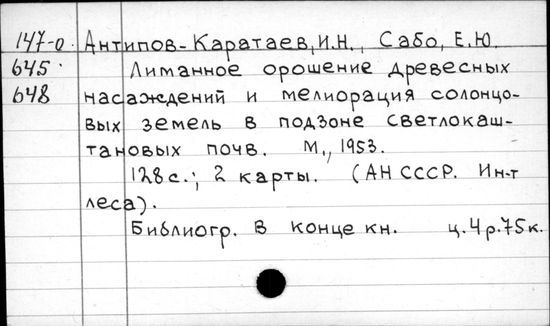 147-о. Антипов-Каратаев, И.Н., Сабо, Е.Ю.
645. Лиманное орошение древесных
648 насаждений и мелиорация солонцо-
вых земель в подзоне светлокаш-
тановых почв. М., 1953.
128 с.; 2 карты. (АН СССР. Ин-т
леса).
Библиогр. в конце кн. ц. 4 р. 75 к.